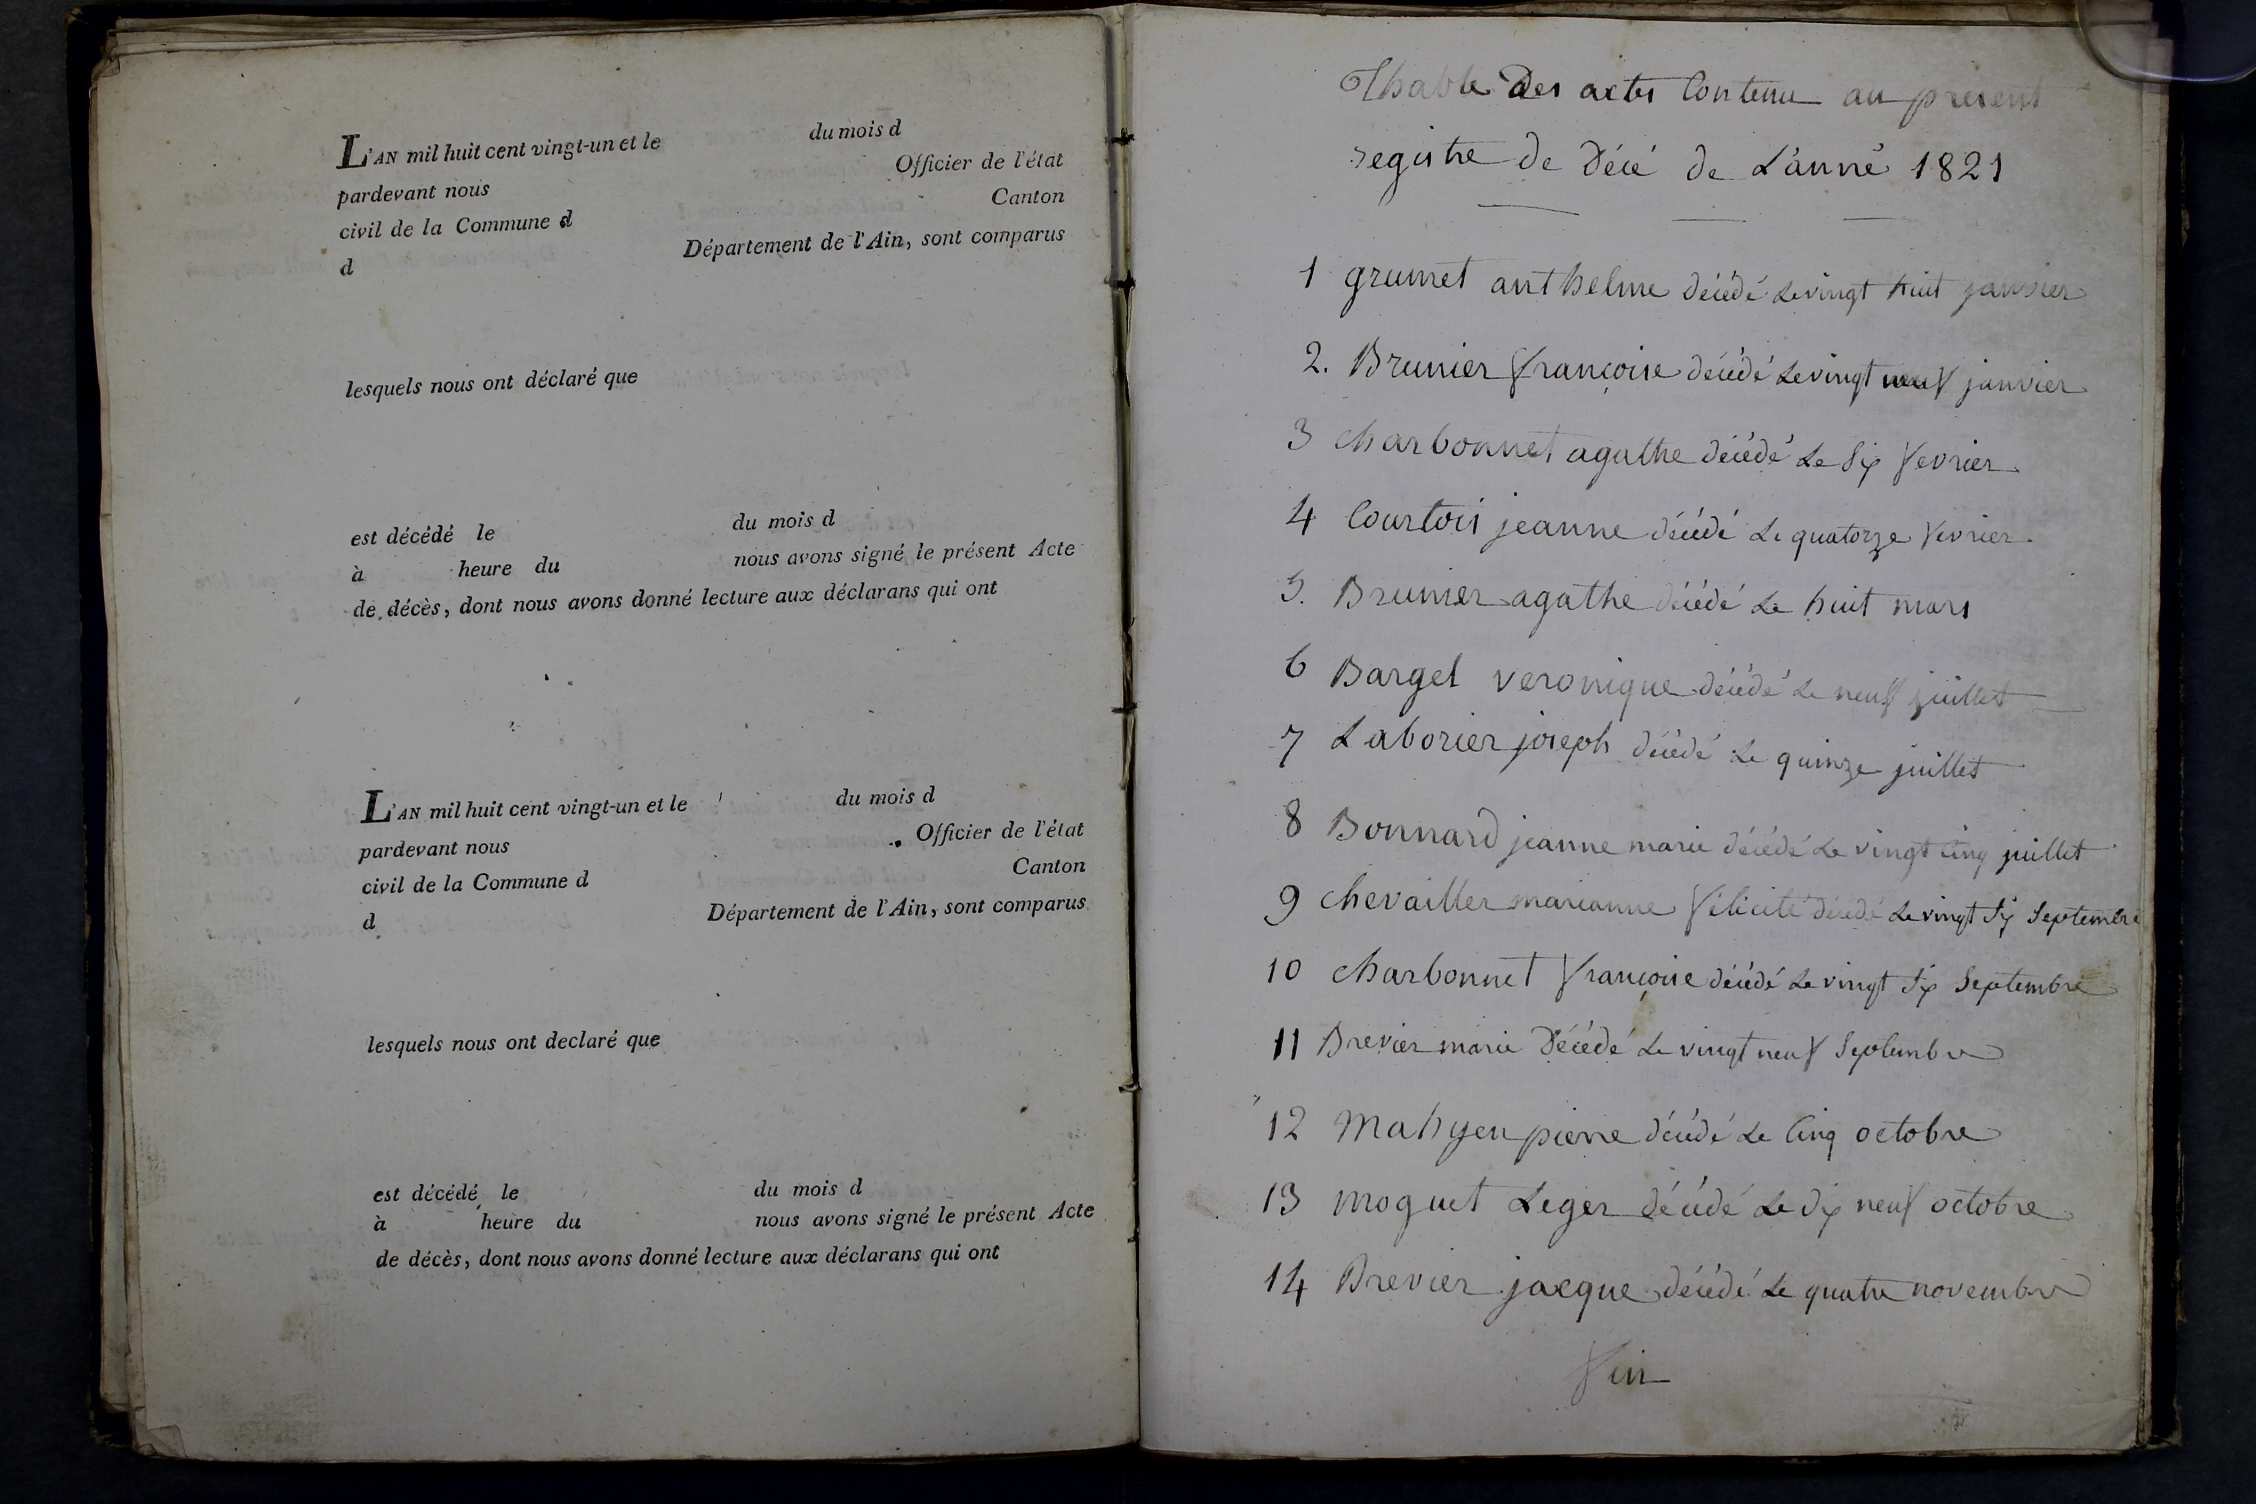 L'AN mil huit cent vingt-un et le du mois d
pardevant nous Officier de l'état
civil de la Commune d Canton
d Département de l'Ain, sont comparus
lesquels nous ont déclaré que
est décédé le du mois d
à heure du nous avons signé le présent Acte
de décès, dont nous avons donné lecture aux déclarans qui ont
L'AN mil huit cent vingt-un et le du mois d
pardevant nous Officier de l'état
civil de la Commune d Canton
d Département de l'Ain, sont comparus
lesquels nous ont declaré que
est décédé le du mois d
à heure du nous avons signé le présent Acte
de décès, dont nous avons donné lecture aux déclarans qui ont
Thable Des actes Contenu au present
registre de Décé de L'anné 1821
1 grumet anthelme décédé Le vingt huit janvier
2. Brunier françoise décédé Le vingt neuf janvier
3 charbonnet agathe décédé Le Six fevrier
4 Courtois jeanne décédé Le quatorze fevrier
5. Brunier agathe décédé Le huit mars
6 Barget veronique décédé Le neuf juillet
7 Laborier joseph décédé Le quinze juillet
8 Bonnard jeanne marie décédé Le vingt cinq juillet
9 chevailler marianne félicité décédé Le vingt Six Septembre
10 charbonnet françoise décédé Le vingt Six Septembre
11 Brevier marie Décédé Le vingt neuf Septembre
12 Mahyeu pierre décédé Le Cinq octobre
13 moguet Leger décédé Le dix neuf octobre
14 Brevier jacque décédé Le quatre novembre
fin